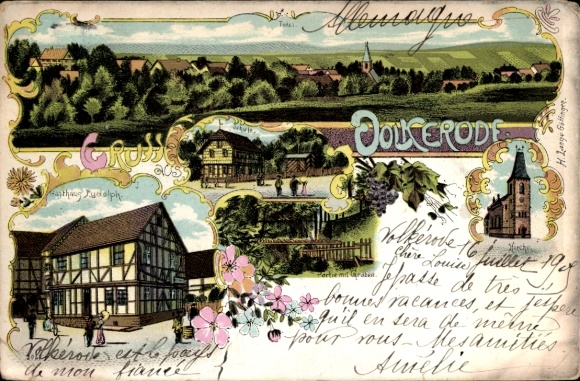 Allemagne
Total
GRUSS AUS
VOLKERODE.
Schule.
H. Lange Göttingen.
Gasthaus Rudolph.
Kirche
Partie mit Graben.
Volkérode 16 Juillet 190
Chère Louise
Je passe de très
bonnes vacances et j'espère
qu'il en sera de même
pour vous - Mes amitiés
Amélie
Volkérode est le pays
de mon fiancé